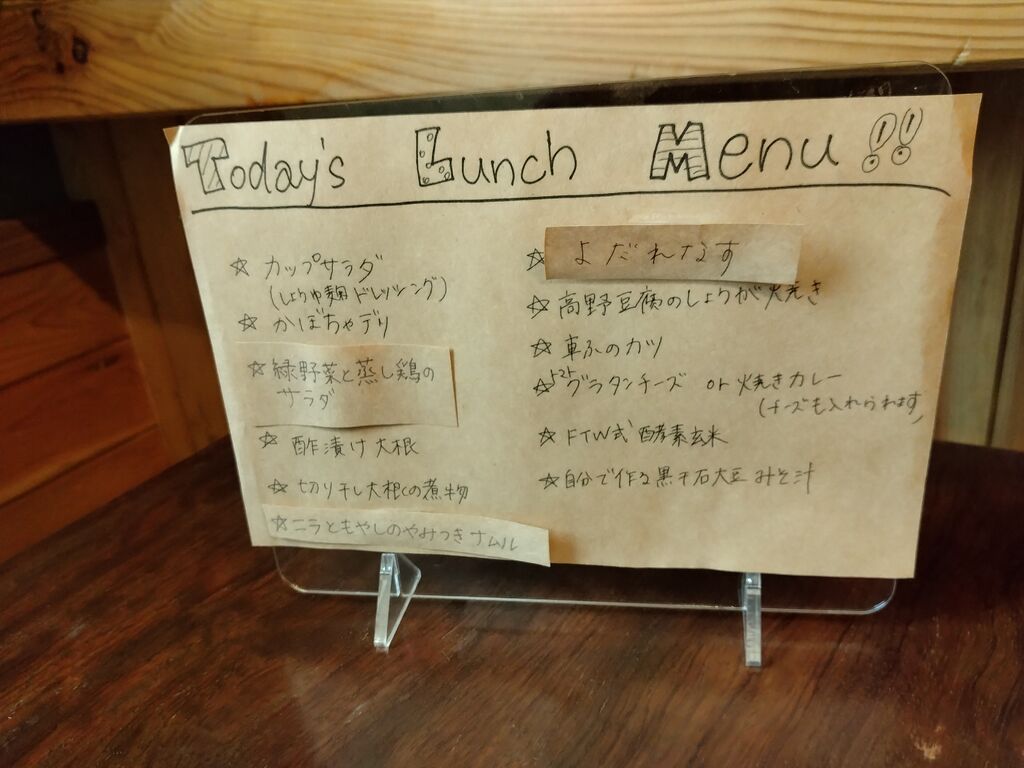 Today's Lunch Menu !!
☆ カップサラダ
(しょうゆ麹ドレッシング)
☆ かぼちゃデリ
☆ 緑野菜と蒸し鶏の
サラダ
☆ 酢漬け大根
☆ 切り干し大根の煮物
☆ ニラともやしのやみつきナムル
☆ よだれなす
☆ 高野豆腐のしょうが焼き
☆ 車ふのカツ
☆ トマトグラタンチーズ or 焼きカレー
(チーズも入れられます)
☆ FTW式 酵素玄米
☆ 自分で作る黒千石大豆みそ汁